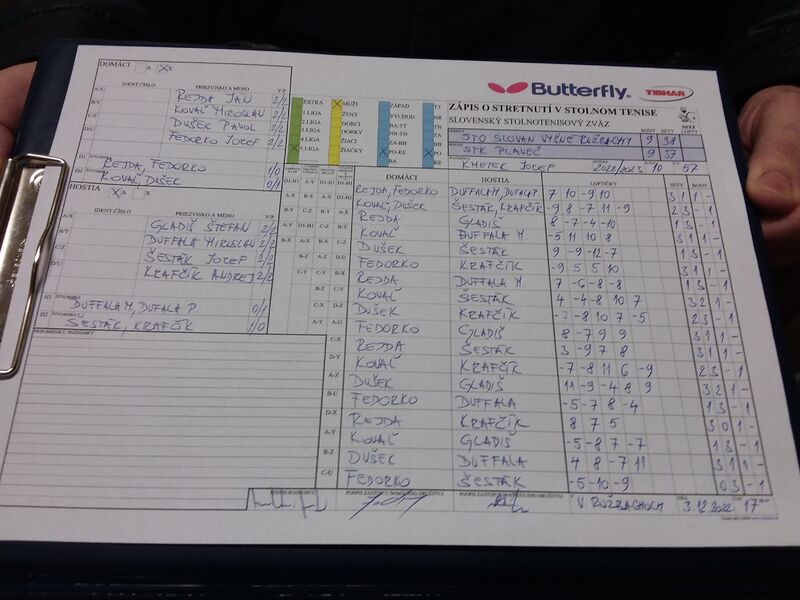 DOMÁCI A X
Butterfly. TIBHAR
IDENT.ČÍSLO PRIEZVISKO A MENO V/P
A/X REJDA JAN 2/2
B/Y KOVAĽ MIROSLAV 2/2
C/Z DUŠEK PAVOL 2/2
D/U FEDORKO JOZEF 2/2
D1 ŠTVORHRA REJDA, FEDORKO 1/0
D2 KOVAĽ, DUŠEK 0/1
HOSTIA A X
IDENT.ČÍSLO PRIEZVISKO A MENO V/P
GLADIŠ ŠTEFAN 2/2
DUFFALA MIROSLAV 2/2
ŠESTÁK JOZEF 2/2
KRAFČÍK ANDREJ 2/2
DUFFALA M, DUFALA P. 0/1
ŠESTÁK, KRAFČÍK 1/0
PRIPOMIENKY, POZNÁMKY
EXTRA MUŽI ZÁPAD TT
1.LIGA ŽENY VÝCHOD NR
2.LIGA DORCI BA-TT TN
3.LIGA DORKY NR-TN ZA
4.LIGA ŽIACI ZA-BB BB
5.LIGA ŽIAČKY PO-KE PO
BA KE
ZÁPIS O STRETNUTÍ V STOLNOM TENISE
SLOVENSKÝ STOLNOTENISOVÝ ZVÄZ
BODY SETY LOPTY
STO SLOVAN VYŠNÉ RUŽBACHY 9 38
STK PLAVEČ 9 37
KMETEK JOZEF 2022/2023 10 57
DOMÁCI HOSTIA LOPTIČKY SETY BODY
REJDA, FEDORKO DUFFALA M, DUFALA P 7 10 -9 10 3 1 1 -
KOVAĽ, DUŠEK ŠESTÁK, KRAFČÍK -9 8 -7 11 -9 2 3 - 1
REJDA GLADIŠ 8 -7 -4 -10 1 3 - 1
KOVAĽ DUFFALA M. -5 11 10 8 3 1 1 -
DUŠEK ŠESTÁK 9 -9 -12 -7 1 3 - 1
FEDORKO KRAFČÍK -9 5 5 10 3 1 1 -
REJDA DUFFALA M 7 -6 -8 -8 1 3 - 1
KOVAĽ ŠESTÁK 4 -4 -8 10 7 3 2 1 -
DUŠEK KRAFČÍK -7 -8 10 7 -5 2 3 - 1
FEDORKO GLADIŠ 8 -7 9 9 3 1 1 -
REJDA ŠESTÁK 3 -9 7 8 3 1 1 -
KOVAĽ KRAFČÍK -7 -8 11 6 -9 2 3 - 1
DUŠEK GLADIŠ 11 -9 -4 8 9 3 2 1 -
FEDORKO DUFFALA -5 -7 8 -4 1 3 - 1
REJDA KRAFČÍK 8 7 5 3 0 1 -
KOVAĽ GLADIŠ -5 -8 7 -7 1 3 - 1
DUŠEK DUFFALA 4 8 -7 11 3 1 1 -
FEDORKO ŠESTÁK -5 -10 -9 0 3 - 1
V RUŽBACHOCH 3.12.2022 17